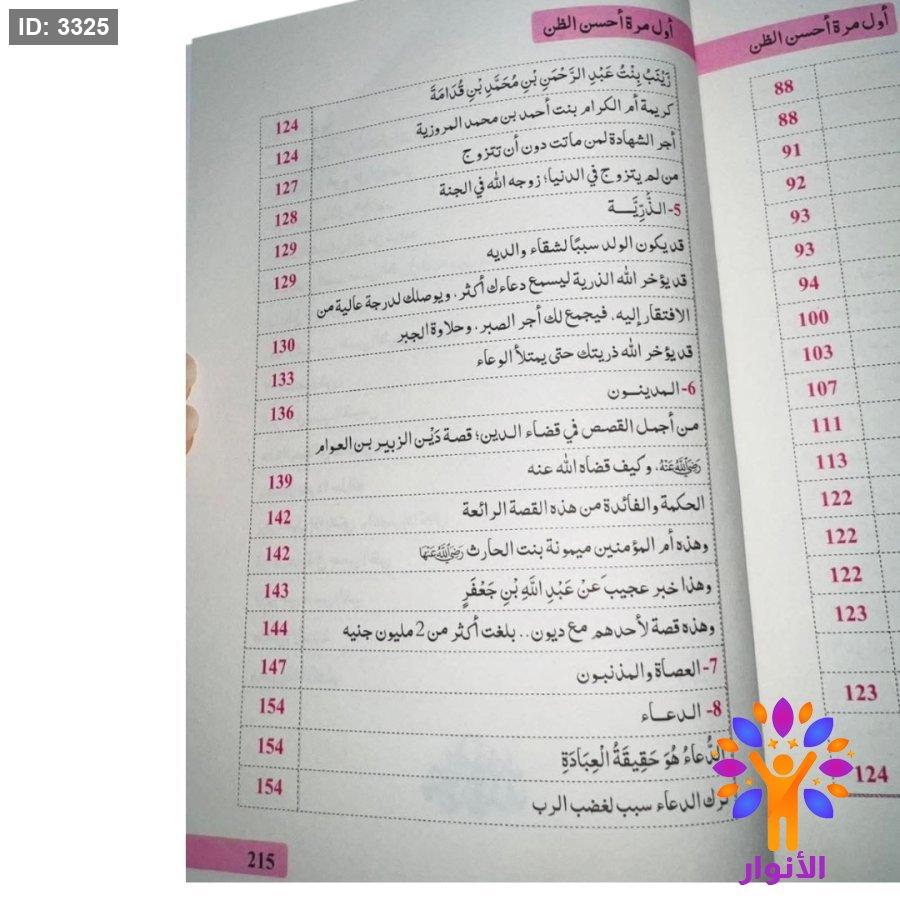 ID: 3325
أول مرة أحسن الظن
88
88
91
92
93
93
94
100
103
107
111
113
122
122
122
123
123
124
أول مرة أحسن الظن
زَيْنَبُ بِنْتُ عَبْدِ الرَّحْمَنِ بْنِ مُحَمَّدِ بْنِ قُدَامَةَ 124
كريمة أم الكرام بنت أحمد بن محمد المروزية 124
أجر الشهادة لمن ماتت دون أن تتزوج 127
من لم يتزوج في الدنيا؛ زوجه الله في الجنة 128
5- الذُّرِّيَّـــة 129
قد يكون الولد سببًا لشقاء والديه 129
قد يؤخر الله الذرية ليسمع دعاءك أكثر. ويوصلك لدرجة عالية من
الافتقار إليه. فيجمع لك أجر الصبر. وحلاوة الجبر 130
قد يؤخر الله ذريتك حتى يمتلأ الوعاء 133
6- المدينــون 136
من أجمل القصص في قضاء الدين؛ قصة دَيْن الزبير بن العوام
رَضِيَ اللَّهُ عَنْهُ، وكيف قضاه الله عنه 139
الحكمة والفائدة من هذه القصة الرائعة 142
وهذه أم المؤمنين ميمونة بنت الحارث رَضِيَ اللَّهُ عَنْهَا 142
وهذا خبر عجيب عَنْ عَبْدِ اللَّهِ بْنِ جَعْفَرٍ 143
وهذه قصة لأحدهم مع ديون.. بلغت أكثر من 2 مليون جنيه 144
7- العصاة والمذنبون 147
8- الدعــاء 154
الدُّعاءُ هُوَ حَقِيقَةُ الْعِبَادَةِ 154
ترك الدعاء سبب لغضب الرب 154
215
الأنوار